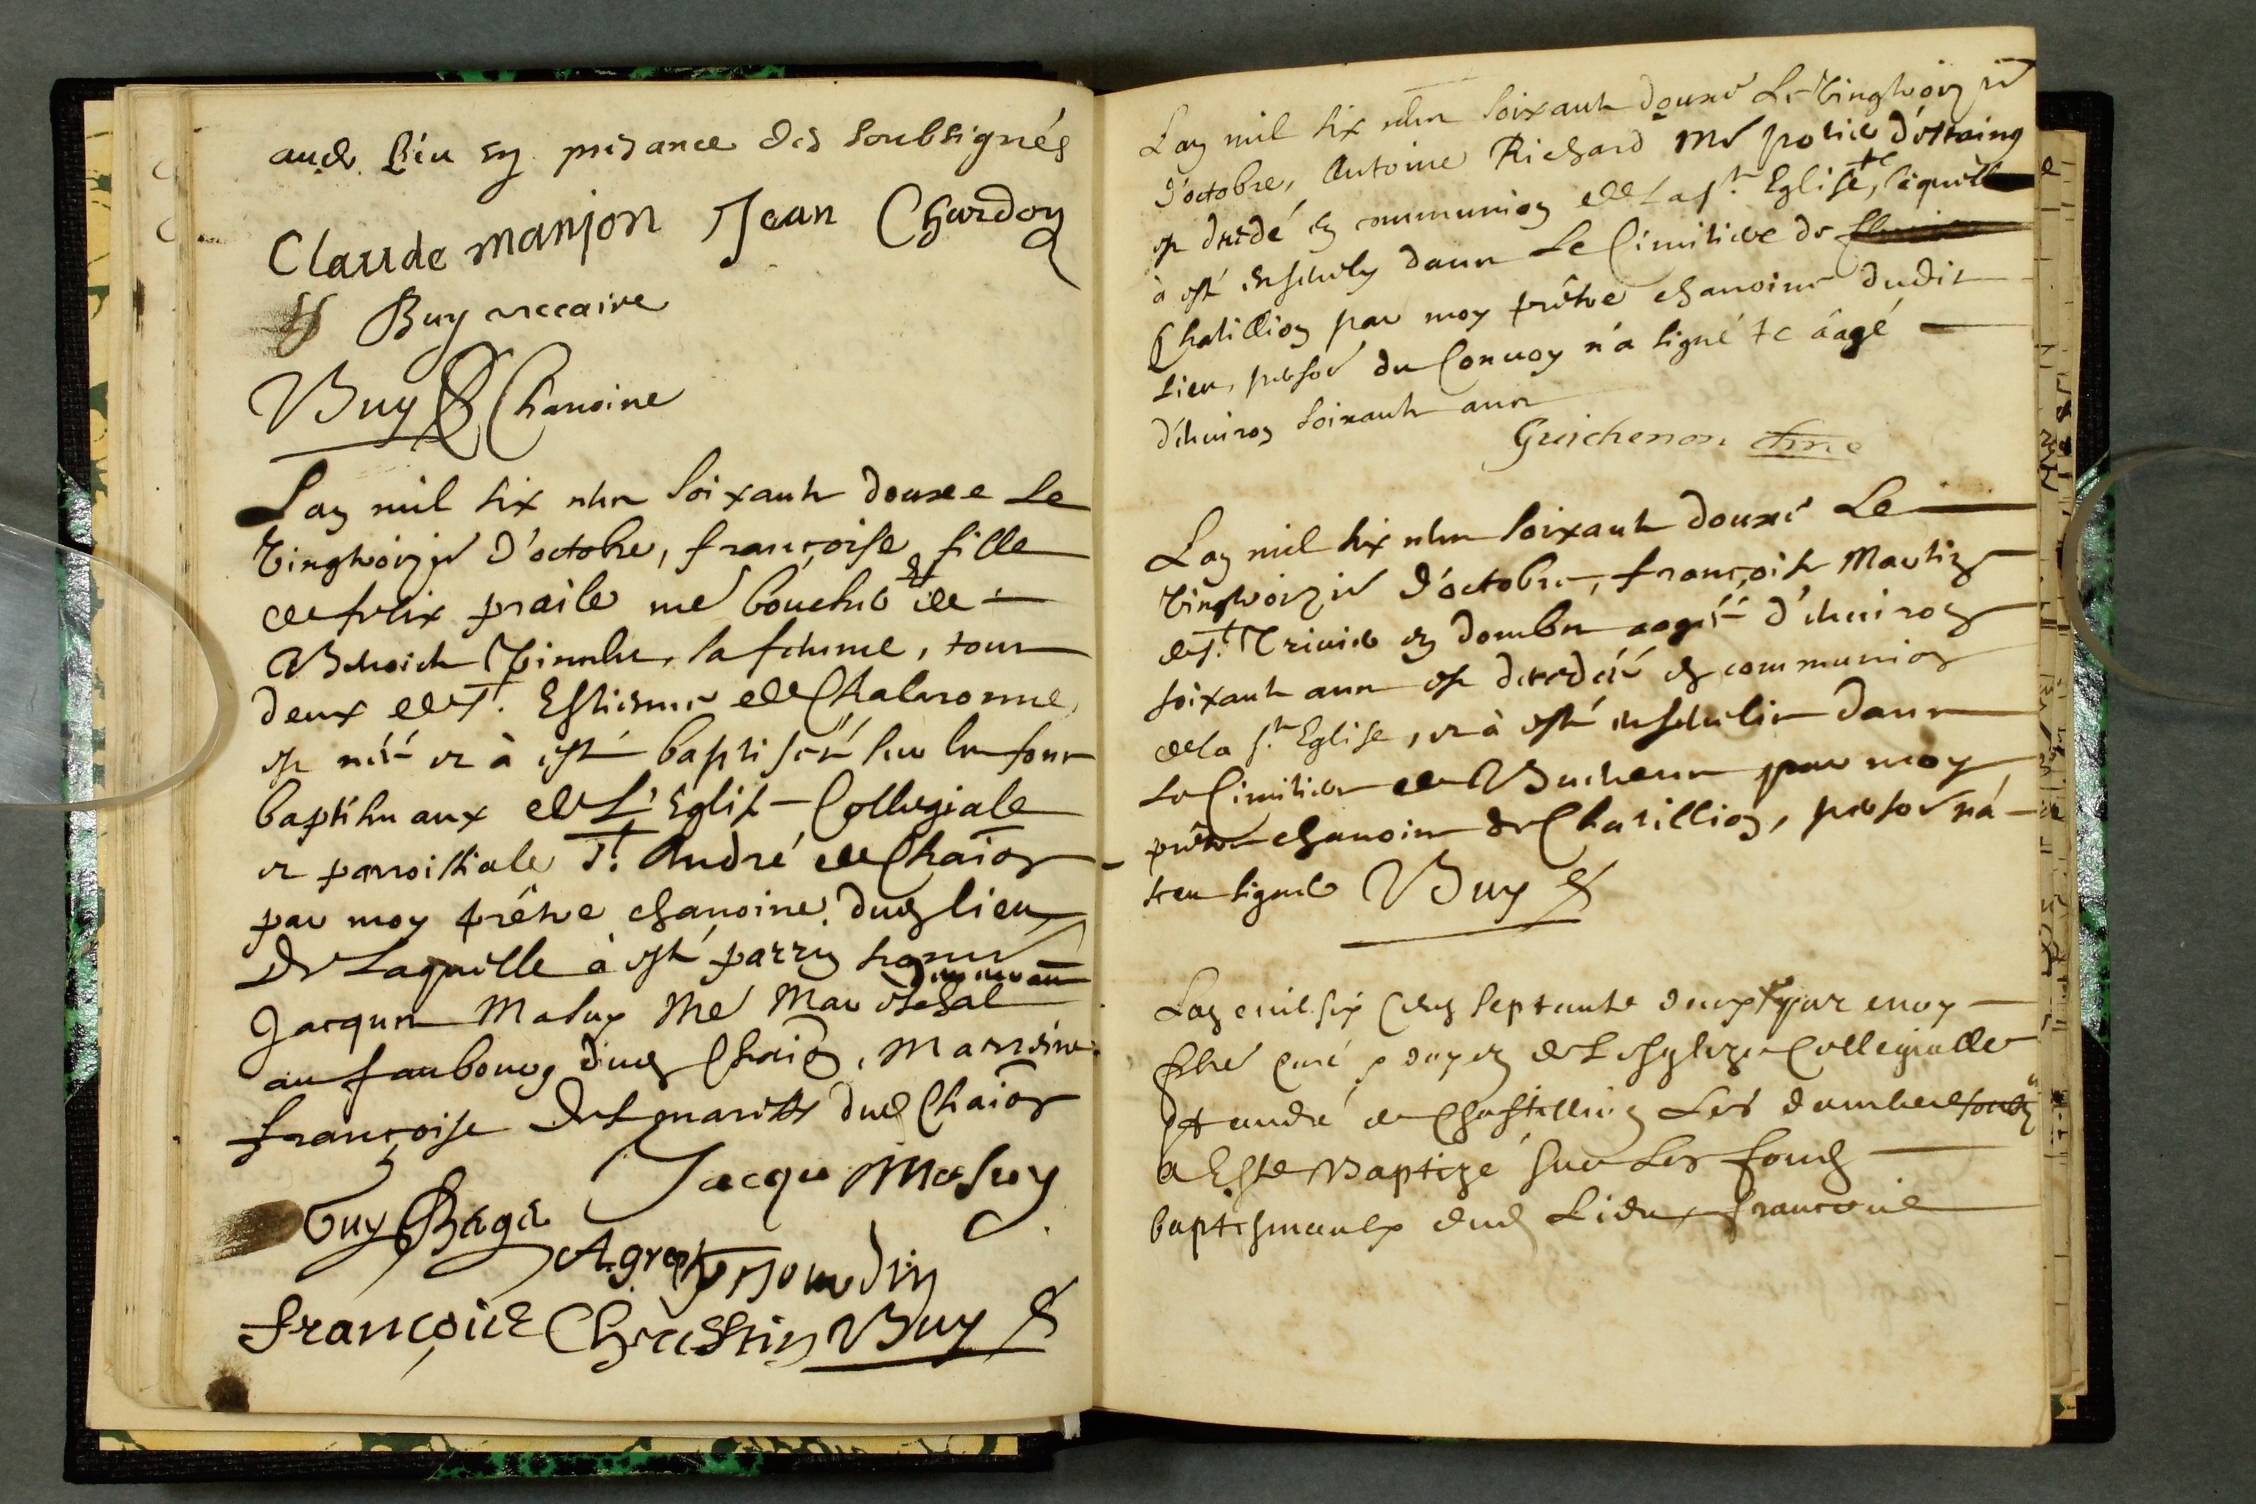 aud. lieu en presance des soubsignés
Claude manjon Jean Chardon
Buy viccaire
Buy Chanoine
Lan mil six cens soixante douze Le
Vingtroizie d'octobre, françoise fille
de felix praile me boucher et de
Benoiste sa femme, tous
deux de St. Estienne de Chalaronne,
est née et à esté baptisée sur les fons
baptismaux de L'Eglise Collegiale
et parroissiale St. André de Chaōn
par moy prêtre chanoine dud lieu
De Laquelle à esté parrin honn
Jacques Masuy Me Mareschal demeurant
au faubourg dud Chaōn, Marreine
françoise Desmarites dud Chaōn
Jacque Masuy
Guy Bage
françoise Chrestin Buy
Lan mil six cens soixante douze Le Vingtroizie
d'octobre, Antoine Richard Me potier d'estaing
est decedé en communion de La ste. Eglise, lequel
à esté ensevely dans Le Cimitiere de
Chatillion par moy prêtre chanoine dudit
Lieu, persoe du Convoy n'a signé âagé
d'environ soixante ans
Guichenon chne
Lan mil six cens soixante douze Le
Vingtroizie d'octobre, françoise Martin
de St. Trivier en dombes aagée d'environ
soixante ans est decedée en communion
de la ste Eglise, et à esté ensevelie dans
Le Cimitiere de Buchenn par moy
prêtre chanoine de Chatillion, persoe n'à
sceu signer Buy
Lan mil six cens septante deux par moy
pbre curé doyen de Lesglize Collegialle
St andre de Chastillion Les dombes
a Este Baptizé sur Les fons
baptismaulx dud Lieu francoise